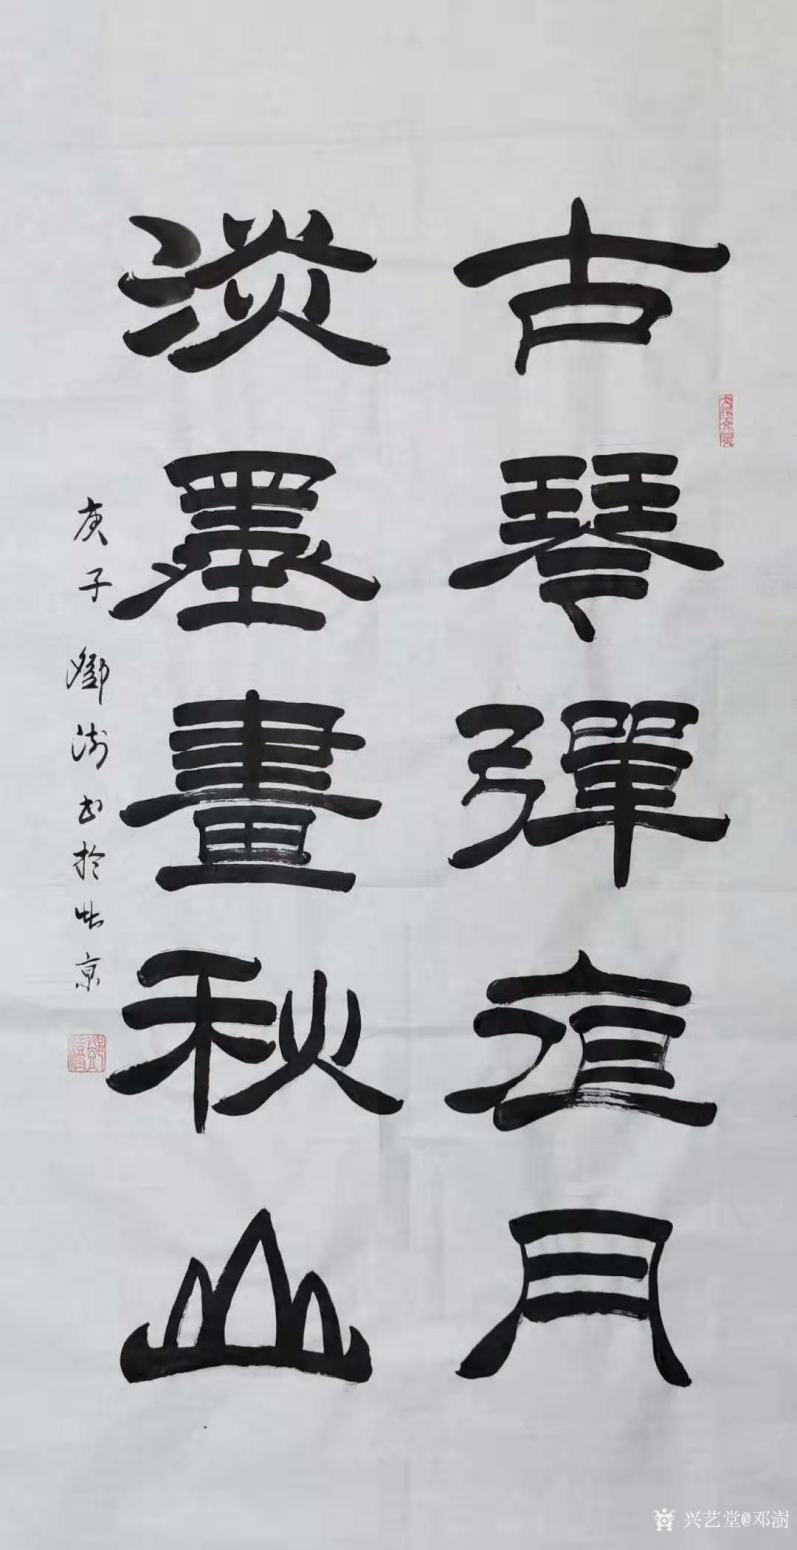 古琴彈夜月
淡墨畫秋山
庚子鄧澍书於北京
兴艺堂@邓澍